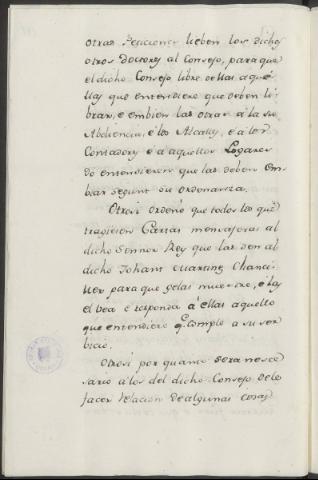 otras Peticiones lieben los dichos
otros Doctores al Consejo, para que
el dicho Consejo libre dellas aque
llas que entendiere que deben li
brar, e embien las otras á la su
Abdiencia, e los Alcalles, e a los
Contadores e a aquellos Logares
do entendieren que las deben em
biar segunt su ordenanza.
Otrosi ordeno que todos los que
tragieren Cartas mensajeras al
dicho Sennor Rey que las den al
dicho Johant Martinez Chanci
ller para que gelas muestre, e las
el vea e responda á ellas aquello
que entendiere q. cumple a su ser
bicio.
Otrosi por quanto sera nesce
sario a los del dicho Consejo de le
facer relacion de algunas cosas